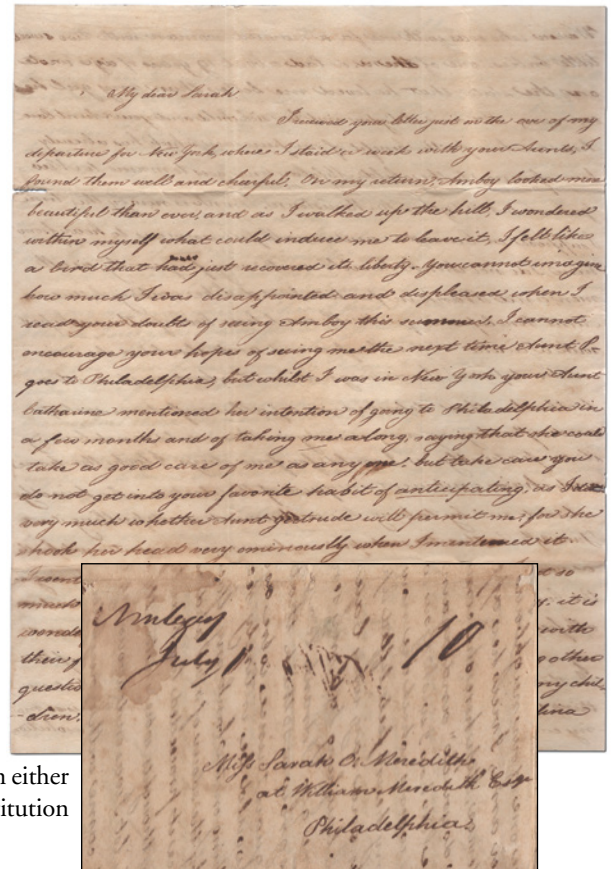 My dear Sarah
I received your letter just on the eve of my
departure for New York, where I staid a week with your Aunts, I
found them well and cheerful. On my return, Amboy looked more
beautiful than ever, and as I walked up the hill, I wondered
within myself what could induce me to leave it, I felt like
a bird that had just recovered its liberty. You cannot imagine
how much I was disappointed and displeased when I
read your doubts of seeing Amboy this summer, I cannot
encourage your hopes of seeing me the next time Aunt P-
goes to Philadelphia, but whilst I was in New York your Aunt
Catharine mentioned her intention of going to Philadelphia in
a few months and of taking me along, saying that she could
take as good care of me as any one. but take care you
do not get into your favorite habit of anticipating, as I
very much whether Aunt Gertrude will permit me; for she
shook her head very ominously when I mentioned it.
I went so
much it is
with
their other
questio my chil
-dren.
Amboy
July 1 10
Miss Sarah Meredith
at William Meredith Esqr
Philadelphia.
n either
titution